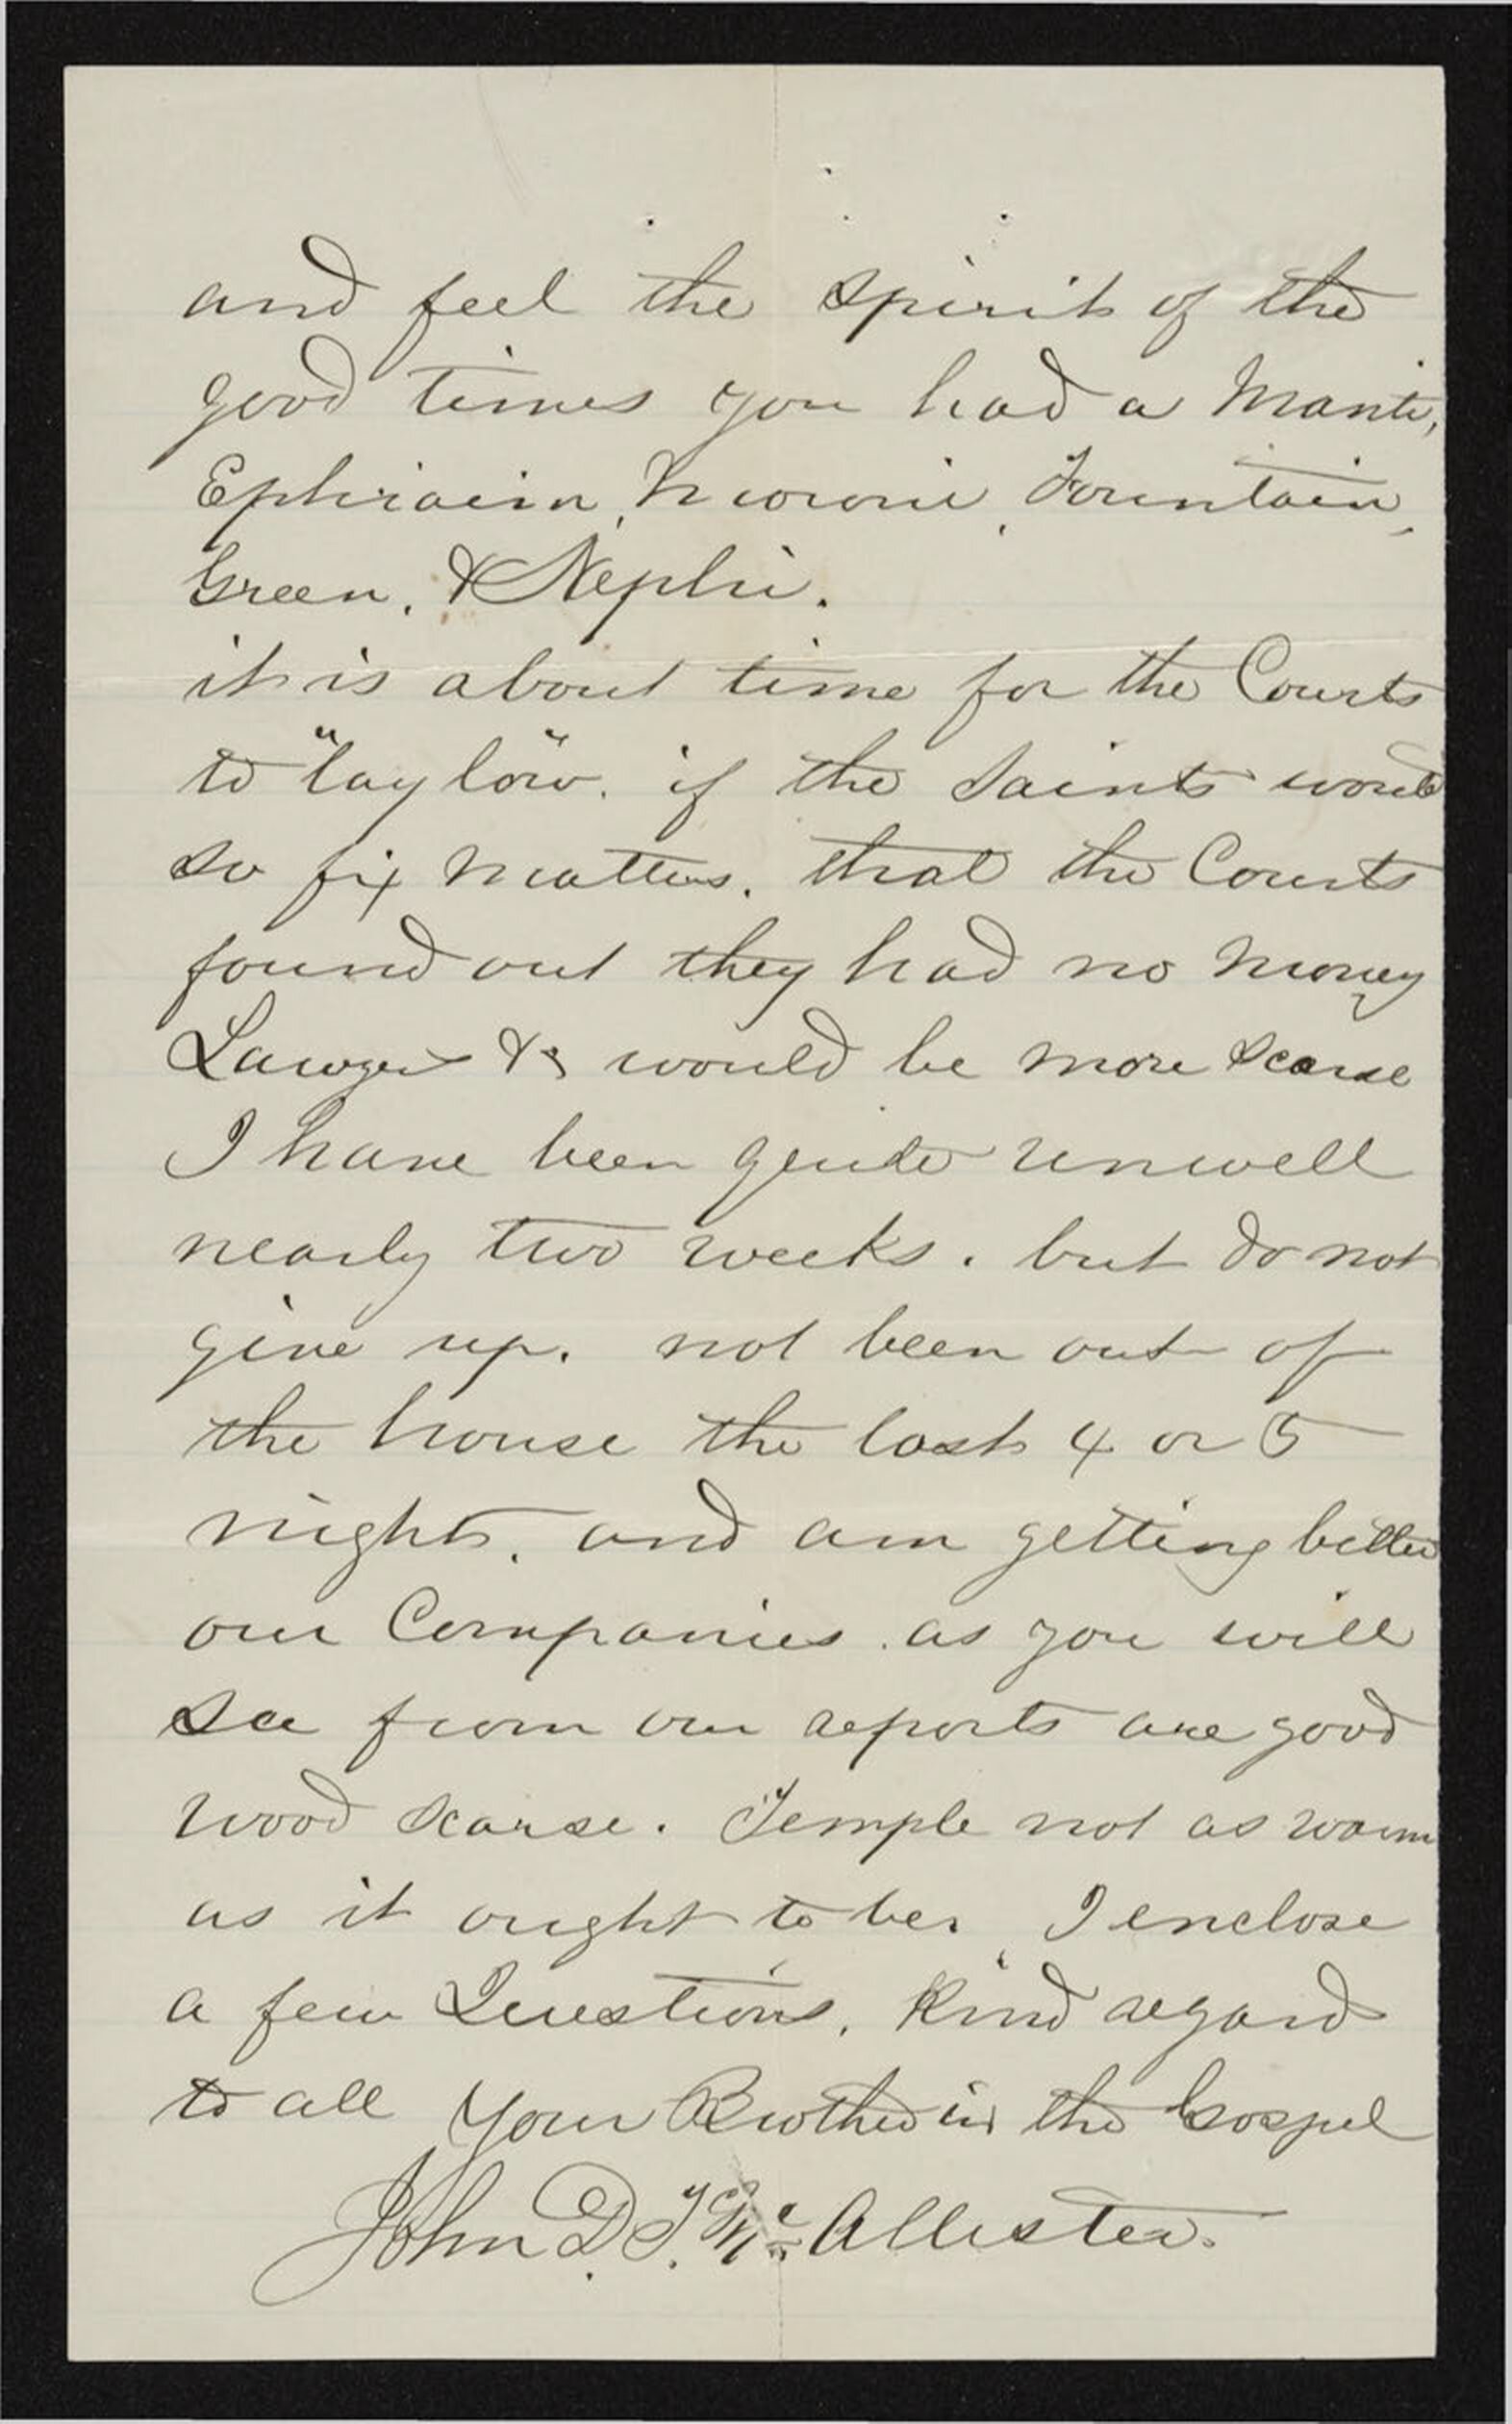 and feel the spirit of the
good times you had a Manti,
Ephraim, Moroni, Fountain,
Green, & Nephi.
it is about time for the Courts
to "lay low". if the Saints would
so fix matters, that the Courts
found out they had no money
Lawyers &c would be more scarse
I have been quite unwell
nearly two weeks. but do not
give up. not been out of
the house the last 4 or 5
nights, and am getting better
our Companies. as you will
see from our reports are good
wood scarse. Temple not as warm
as it ought to be, I enclose
a few Questions, Kind regards
to all Your Brother in the Gospel
John D. T. McAllister.